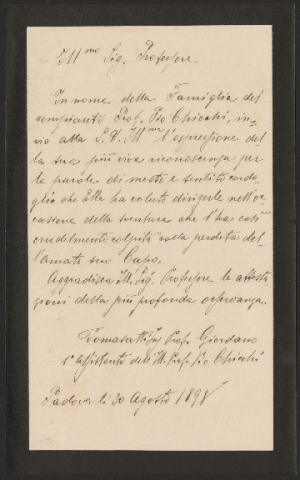 Ill.mo Sig. Professore
In nome della Famiglia del
compianto Prof. Pio Chicchi, in-
vio alla S. V. Ill.ma l'espressione del-
la sua più viva riconoscenza per
le parole di mesto e sentito cordo-
glio che Ella ha voluto dirigerle nell'oc-
casione della sventura che l'ha così
crudelmente colpita colla perdita del-
l'amato suo Capo.
Aggradisca Ill. Sig. Professore le attesta
zioni della più profonda osservanza.
Tomasatti Ing. Prof. Giordano
1º Assistente dell'Ill. Prof. Pio Chicchi
Padova li 30 Agosto 189